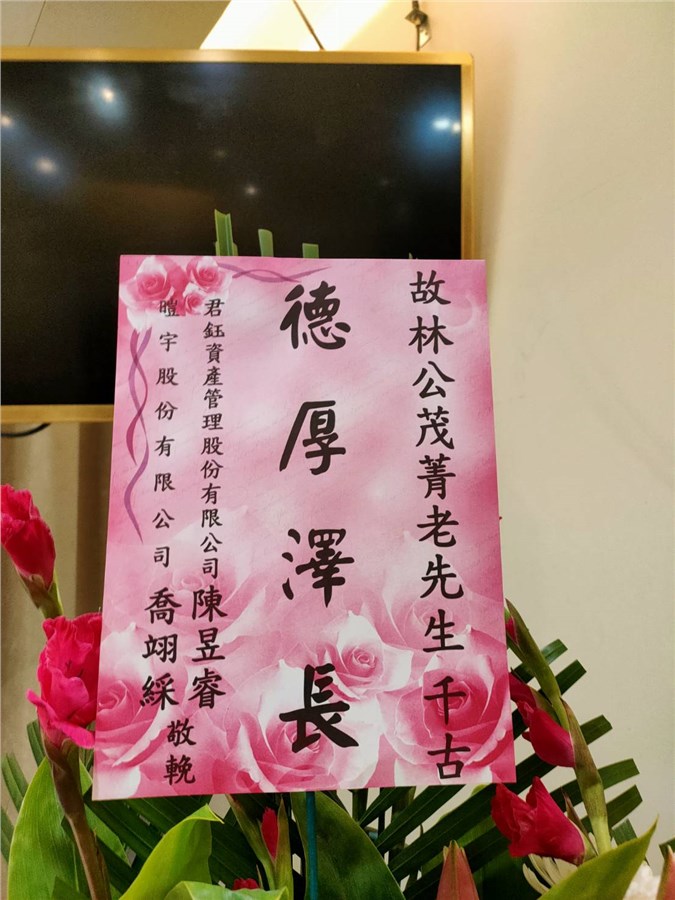 故林公茂菁老先生千古
德厚澤長
君鈺資產管理股份有限公司 陳昱睿
暟宇股份有限公司 喬翊綵
敬輓